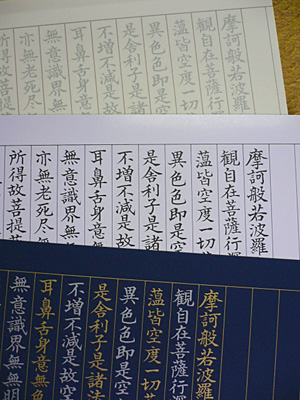 摩訶般若波羅
観自在菩薩行
薀皆空度一切
異色色即是空
是舎利子是諸
不増不減是故
耳鼻舌身意無
無意識界無
亦無老死尽
所得故菩提
摩訶般若波羅
観自在菩薩行
薀皆空度一切
異色色即是空
是舎利子是諸
不増不減是故
耳鼻舌身意無
無意識界無無
亦無老死尽無
所得故菩提
摩訶般若波羅
観自在菩薩行
薀皆空度一切
異色色即是空
是舎利子是諸法
不増不減是故空
耳鼻舌身意無色
無意識界無無明